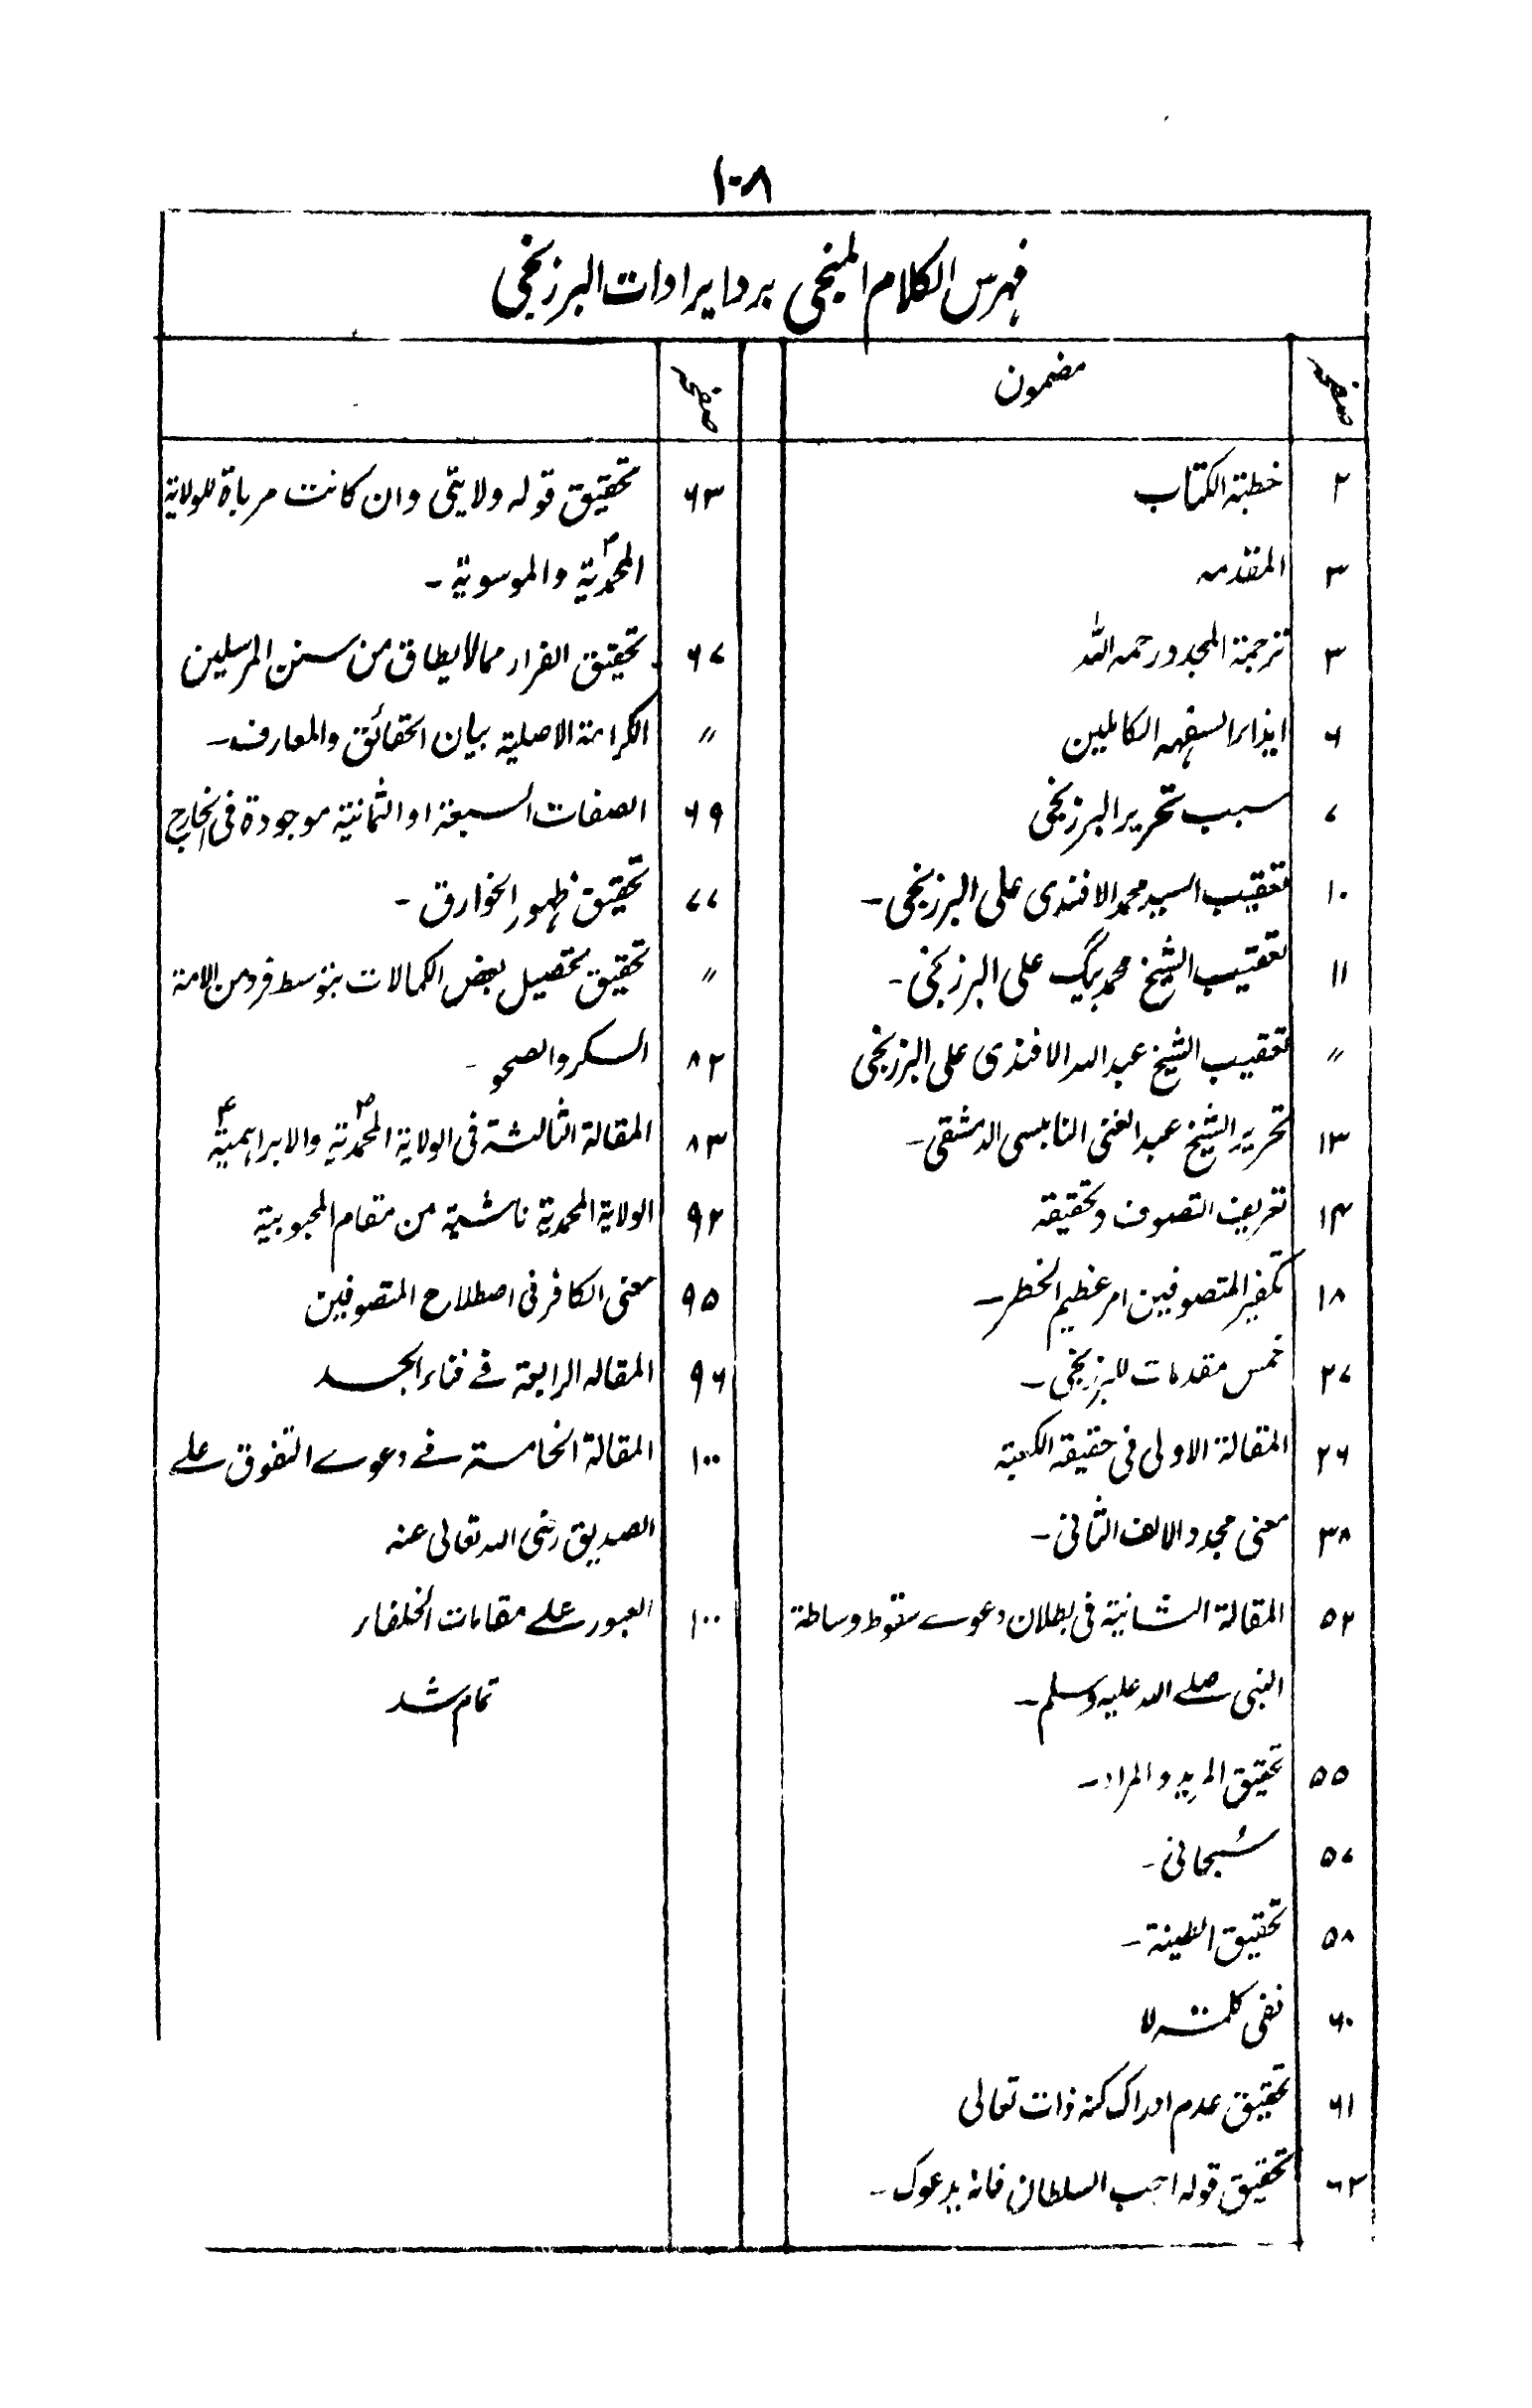 ۱۰۸
فہرس الکلام المنجی برد ایرادات البرزنجی
صفحہ مضمون
۲ خطبۃ الکتاب
۳ المقدمہ
۳ ترجمۃ المجدد رحمہ اللہ
۶ ایذاء السفہہ الکاملین
۷ سبب تحریر البرزنجی
۱۰ تعقیب السید محمد الافندی علی البرزنجی۔
۱۱ تعقیب الشیخ محمد بیگ علی البرزنجی۔
〃 تعقیب الشیخ عبد اللہ الافندی علی البرزنجی
۱۳ تحریر الشیخ عبد الغنی النابلسی الدمشقی۔
۱۴ تعریف التصوف وتحقیقہ
۱۸ تکفیر المتصوفین امر عظیم الخطر۔
۲۷ خمس مقدمات للبرزنجی۔
۲۶ المقالۃ الاولی فی حقیقۃ الکعبۃ
۳۸ معنی مجدد الالف الثانی۔
۵۲ المقالۃ الثانیۃ فی بطلان دعوے سقوط وساطۃ
النبی صلے اللہ علیہ وسلم۔
۵۵ تحقیق المرید والمراد۔
۵۷ سُبحانی۔
۵۸ تحقیق الطینۃ۔
۶۰ نفی کلمۃ لا
۶۱ تحقیق عدم ادراک کنہ ذات تعالی
۶۲ تحقیق قولہ اجب السلطان فانہ یدعوک۔
صفحہ
۶۳ تحقیق قولہ ولایتی وان کانت مرباۃ للولایۃ
المحمدیۃ والموسویۃ۔
۶۷ تحقیق الفرار مما لا یطاق من سنن المرسلین
〃 الکرامۃ الاصلیۃ بیان الحقائق والمعارف۔
۶۹ الصفات السبعۃ او الثمانیۃ موجودۃ فی الخارج
۷۷ تحقیق ظہور الخوارق۔
〃 تحقیق تحصیل بعض الکمالات بتوسط فرد من الامۃ
۸۲ السکر والصحو۔
۸۳ المقالۃ الثالثۃ فی الولایۃ المحمدیۃ والابراہیمیۃ
۹۲ الولایۃ المحمدیۃ ناشئۃ من مقام المحبوبیۃ
۹۵ معنی الکافر فی اصطلاح المتصوفین
۹۶ المقالہ الرابعۃ فے فناء الجسد
۱۰۰ المقالۃ الخامسۃ فے دعوے التفوق علے
الصدیق رضی اللہ تعالی عنہ
۱۰۰ العبور علے مقامات الخلفاء
تمام شد